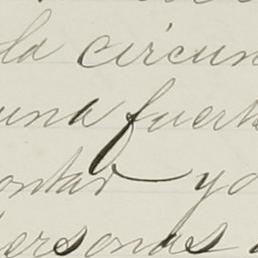 la circun
una fuert
ontar yo
personas